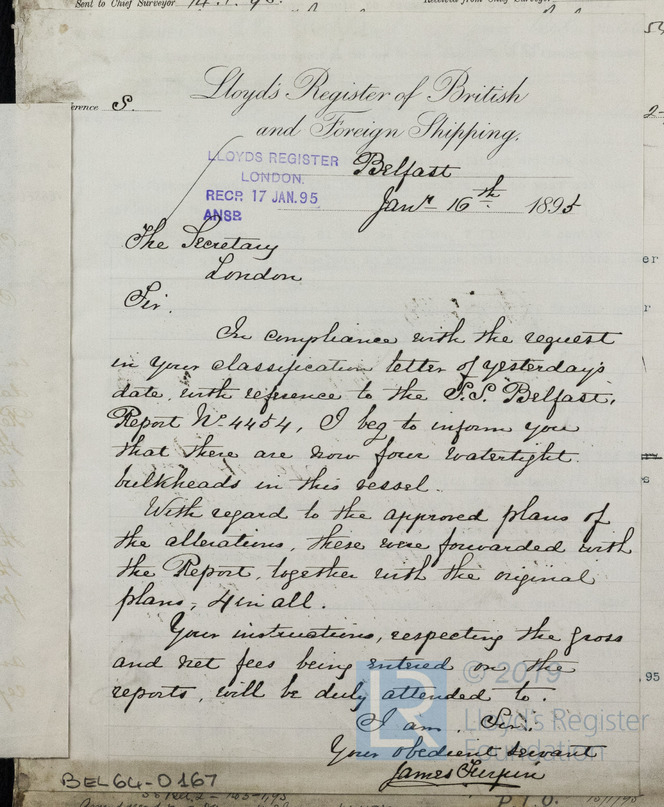 Sent to Chief Surveyor 14.1.95.
Received from Chief Surveyor
erence S.
Lloyd's Register of British
and Foreign Shipping.
LLOYDS REGISTER
LONDON.
RECD. 17 JAN. 95
ANSD
Belfast
Jany 16th 1895
The Secretary
London
Sir.
In compliance with the request
in your classification letter of yesterday's
date, with reference to the S.S. Belfast,
Report No. 4454, I beg to inform you
that there are now four watertight
bulkheads in this vessel.
With regard to the approved plans of
the alterations, these were forwarded with
the Report, together with the original
plans, 4 in all.
Your instructions, respecting the gross
and net fees being entered on the
reports, will be duly attended to.
I am, Sir.
Your obedient servant
James Turpin
© 2019
LR
Lloyd's Register
Foundation
BEL64-0167
P.T.O.
er
r
s
95